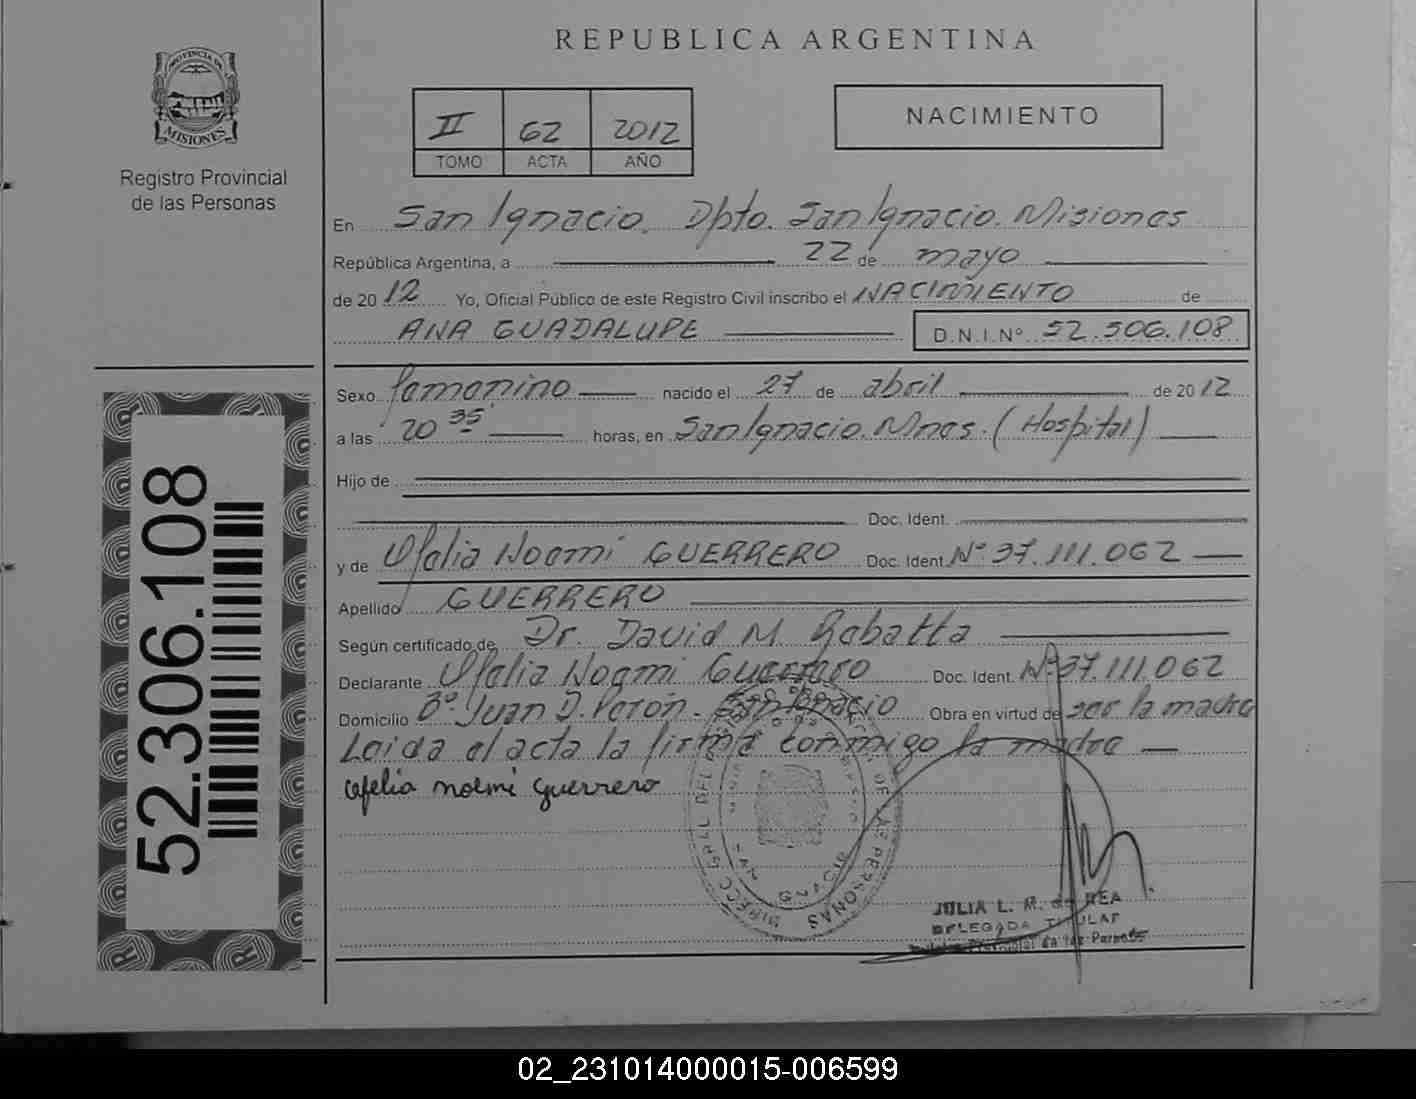 REPUBLICA ARGENTINA
PROVINCIA DE
MISIONES
Registro Provincial
de las Personas
II 62 2012
TOMO ACTA AÑO
NACIMIENTO
En San Ignacio. Dpto. San Ignacio. Misiones
República Argentina, a 22 de mayo
de 2012 Yo, Oficial Público de este Registro Civil inscribo el NACIMIENTO de
ANA GUADALUPE D.N.I.Nº 52.306.108
Sexo femenino nacido el 27 de abril de 2012
a las 20 35' horas, en San Ignacio. Mnes. (Hospital)
Hijo de
Doc. Ident.
y de Ofelia Noemi GUERRERO Doc. Ident. Nº 37.111.062
Apellido GUERRERO
Según certificado de Dr. David M. Rabatta
Declarante Ofelia Noemi Guerrero Doc. Ident. Nº 37.111.062
Domicilio Bº. Juan D. Perón - San Ignacio Obra en virtud de ser la madre
Leida el acta la firma conmigo la madre
Ofelia noemi guerrero
52.306.108
JULIA L. M. de REA
DELEGADA TITULAR
Provincial de las Personas
02_231014000015-006599